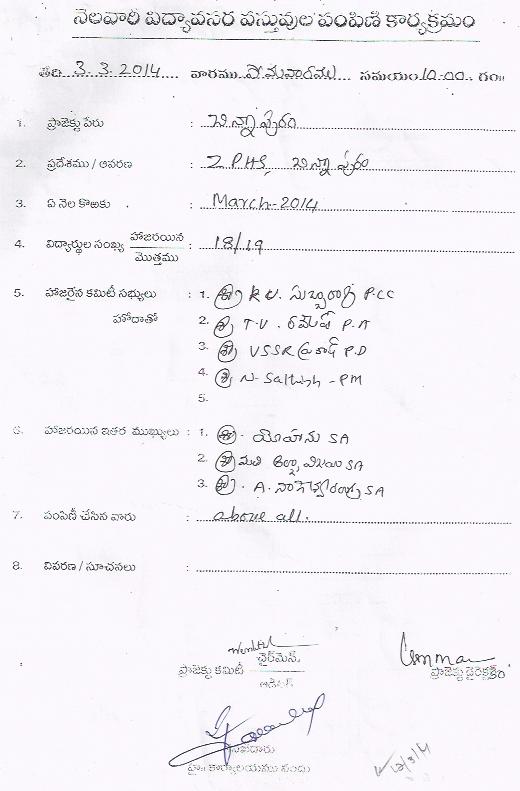 నెలవారి విద్యావసర వస్తువుల పంపిణి కార్యక్రమం
తేది 3.3.2014 వారము సోమవారము సమయం 10-00 గం॥
1. ప్రాజెక్టు పేరు : చిన్నాపురం
2. ప్రదేశము / ఆవరణ : ZPHS, చిన్నాపురం
3. ఏ నెల కొఱకు : March-2014
4. విద్యార్థుల సంఖ్య హాజరయిన / మొత్తము : 18/19
5. హాజరైన కమిటీ సభ్యులు : 1. శ్రీ K.V. సుబ్బారావు P.CC
హోదాతో 2. శ్రీ T.V. రమేష్ P.A
3. శ్రీ VSSR ప్రసాద్ P.D
4. శ్రీ N. Sathish - PM
5.
6. హాజరయిన ఇతర ముఖ్యులు : 1. శ్రీ. యోహాను SA
2. శ్రీమతి విజయ SA
3. శ్రీ. A. నాగేశ్వరరావు SA
7. పంపిణీ చేసిన వారు : above all.
8. వివరణ / సూచనలు :
ఛైర్మెన్
ప్రాజెక్టు కమిటీ ప్రాజెక్టు డైరెక్టర్
హై॥ కార్యాలయము నందు